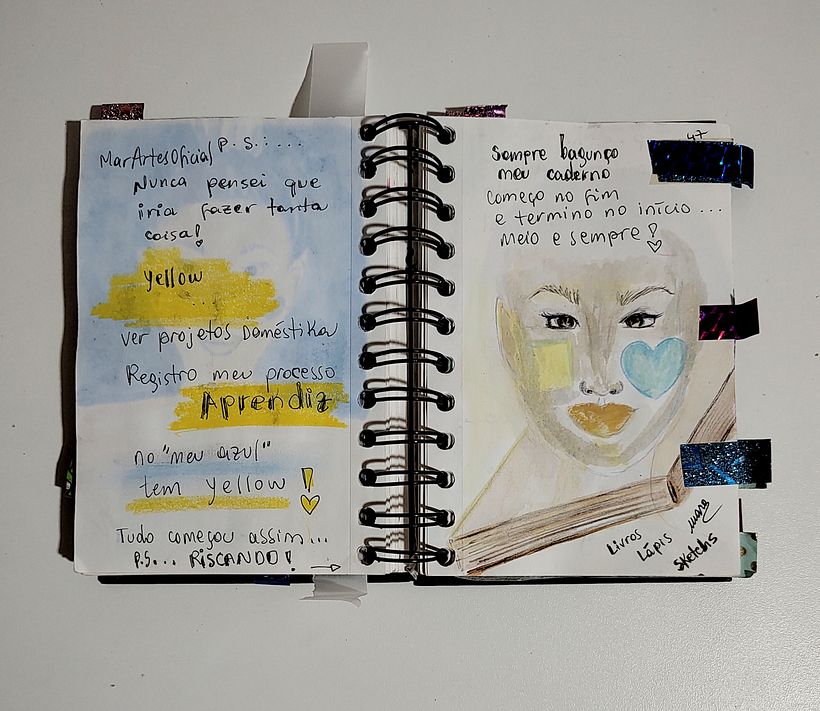 MarArtesOficial P.S.:...
Nunca pensei que
iria fazer tanta
coisa!
yellow
ver projetos Doméstika
Registro meu processo
Aprendiz
no "meu azul"
tem yellow!
Tudo começou assim...
P.S... RISCANDO!
47
Sempre bagunço
meu caderno
Começo no fim
e termino no início...
Meio e sempre!
Livros
Lápis
Sketchs